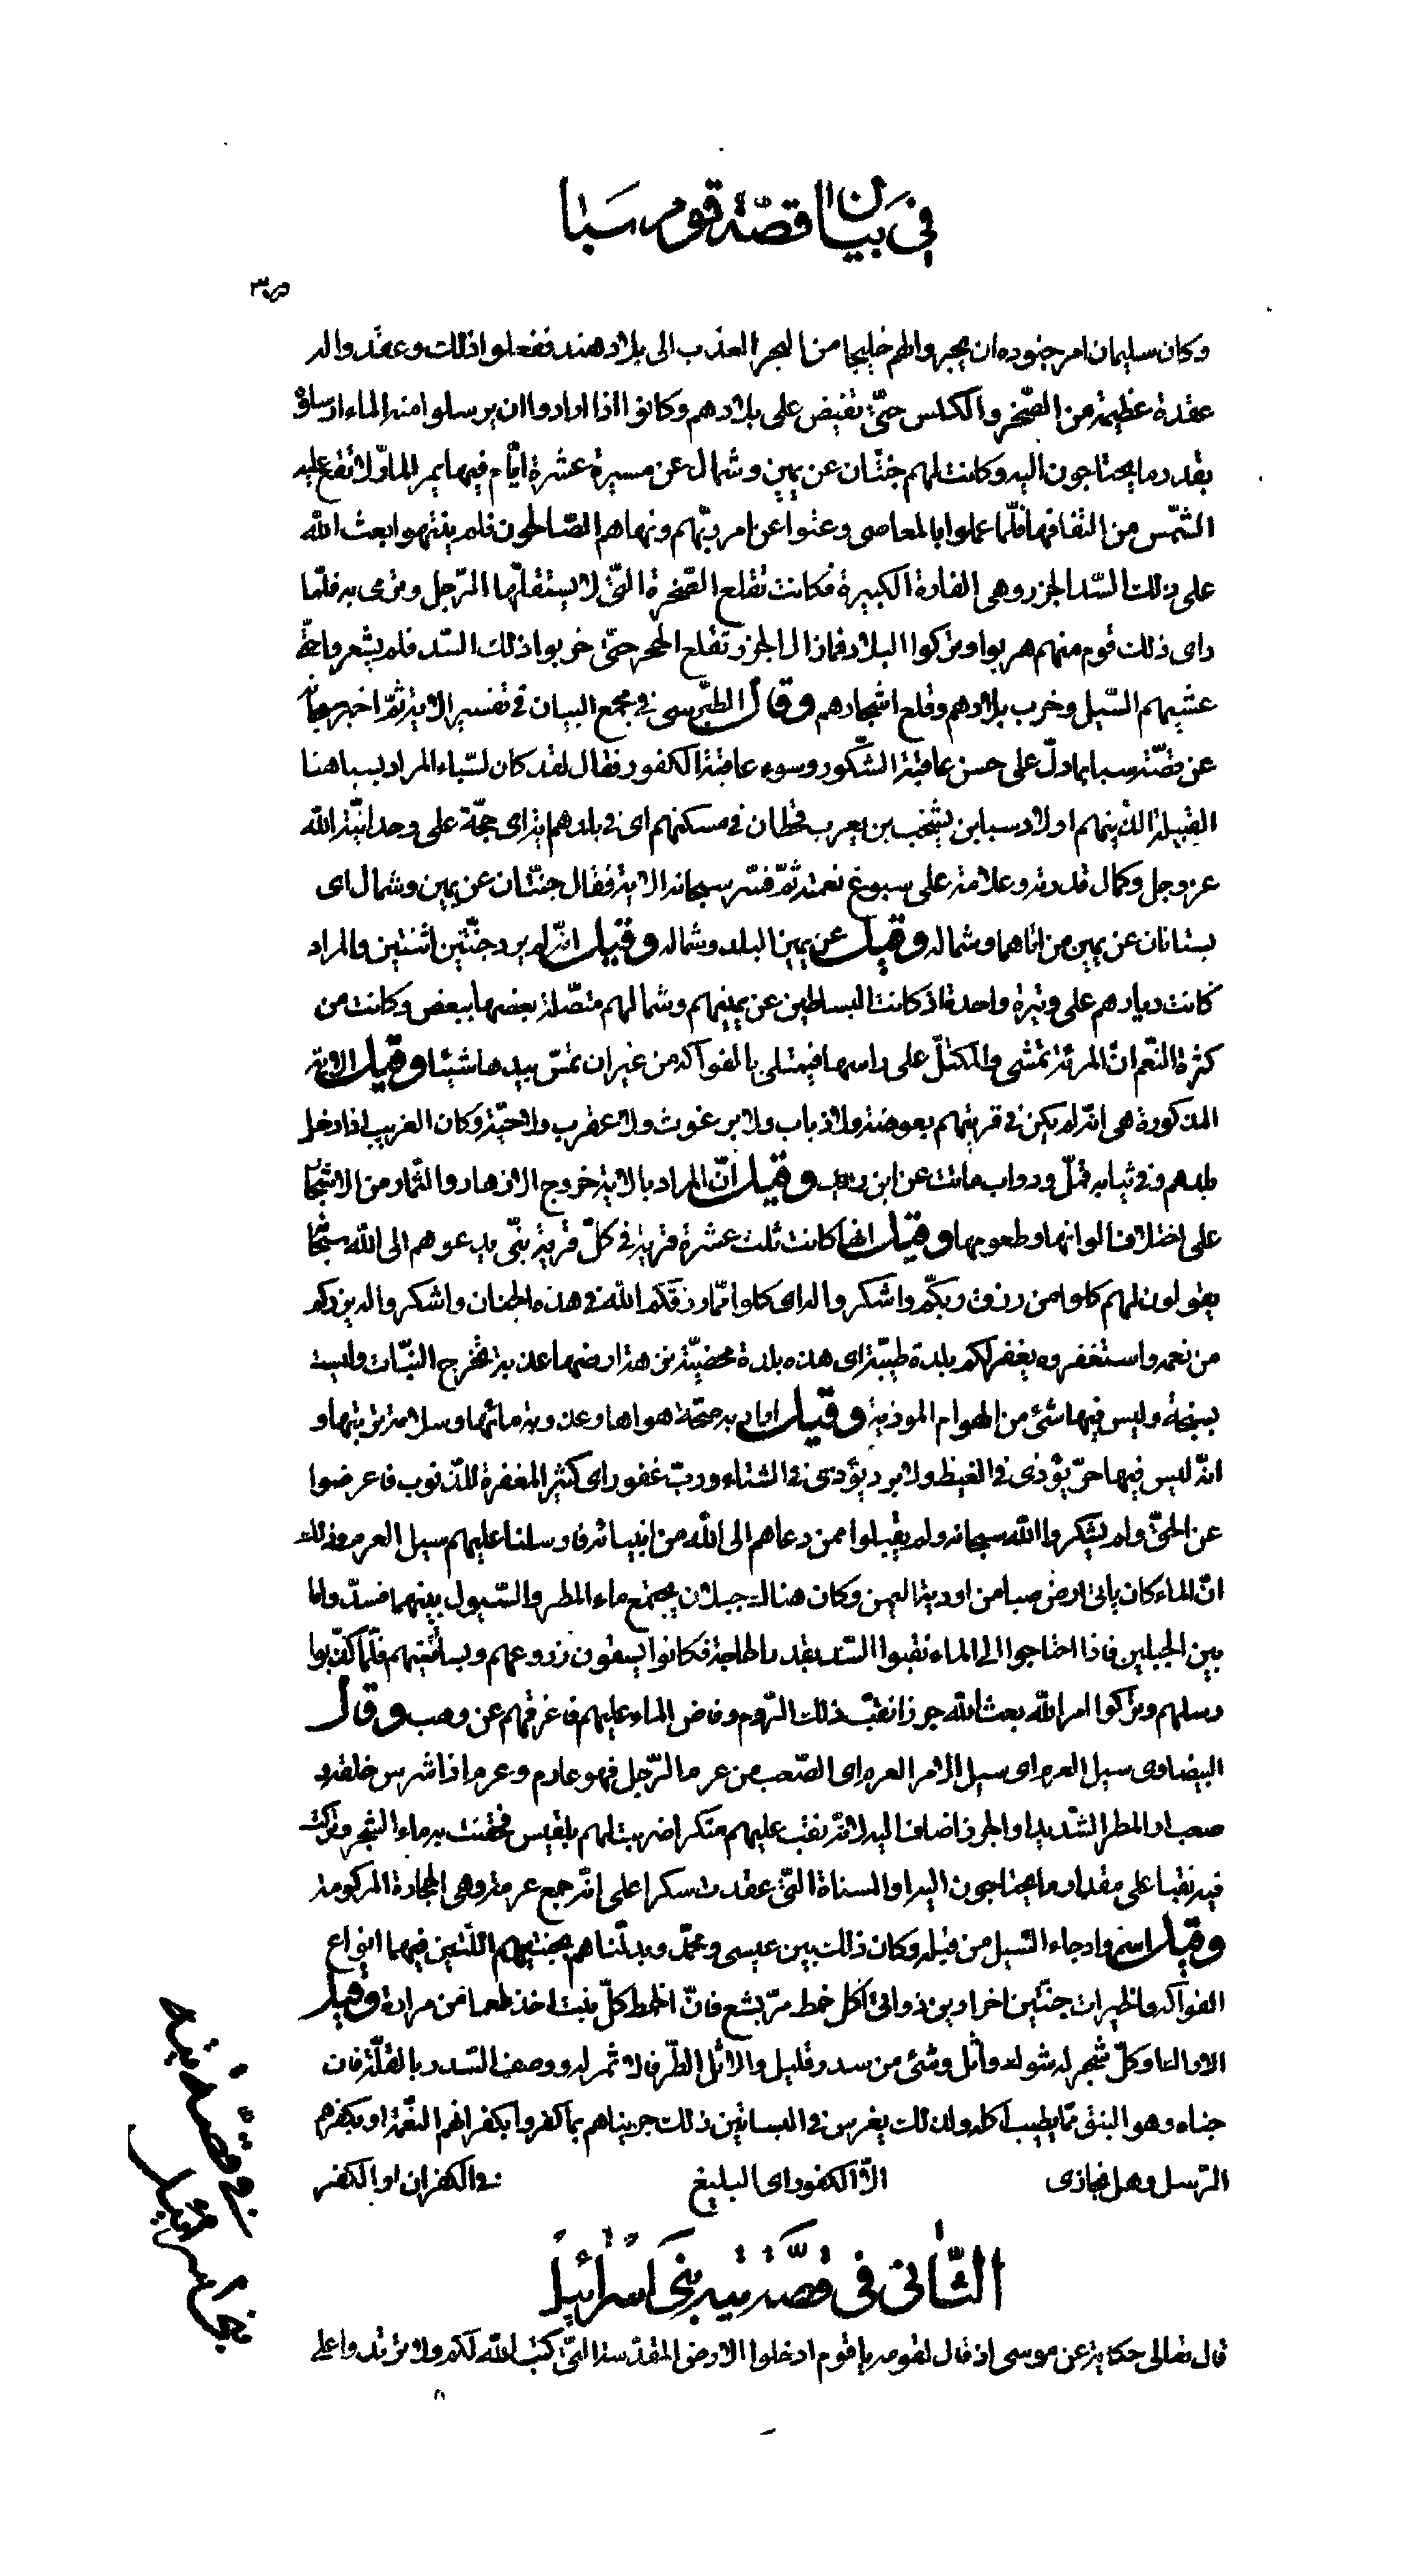 في بيان قصّة قوم سبا
وكان سليمان امر جنوده ان يجروا لهم خليجا من البحر العذب الى بلاد هند ففعلوا ذلك وعقدوا له
عقدة عظيمة من الصّخر والكلس حتّى تفيض على بلادهم وكانوا اذا ارادوا ان يرسلوا منه الماء ارسلوه
بقدر ما يحتاجون اليه وكانت لهم جنّتان عن يمين وشمال عن مسيرة عشرة ايّام فيها يمر المارّ لا تقع عليه
الشّمس من التفافها فلمّا عملوا بالمعاصى وعتوا عن امر ربّهم ونهاهم الصّالحون فلم ينتهوا بعث الله
على ذلك السّد الجرز وهى الفارة الكبيرة فكانت تقلع الصّخرة الّتى لا يستقلّها الرّجل وترمى به فلمّا
راى ذلك قوم منهم هربوا وتركوا البلاد فمازال الجرز تقلع الحجر حتّى خربوا ذلك السّد فلم يشعروا حتّى
غشيهم السّيل وخرب بلادهم وقلع اشجارهم وقال الطّبرسى فى مجمع البيان فى تفسير الاية ثمّ اخبر سبحانه
عن قصّة سبا بما دلّ على حسن عاقبة الشّكور وسوء عاقبة الكفور فقال لقد كان لسباء المراد بسبا هنا
القبيلة الذينهم اولاد سبا بن يشجب بن يعرب قحطان فى مسكنهم اى فى بلدهم اية اى حجّة على وحدانيّة الله
عز وجل وكمال قدرته وعلامة على سبوغ نعمته ثمّ فسّر سبحانه الاية فقال جنّتان عن يمين وشمال اى
بستانان عن يمين من اتاهما وشماله وقيل عن يمين البلد وشماله وقيل انّه لم يرد جنّتين اثنتين والمراد
كانت ديارهم على وتيرة واحدة اذ كانت البساطين عن يمينهم وشمالهم متصّلة بعضها ببعض وكانت من
كثرة النّعم انّ المرئة تمشى والمكتلّ على راسها فيمتلى بالفواكه من غير ان تمسّ بيدها شيئا وقيل الاية
المذكورة هى انّه لم يكن فى قريتهم بعوضة ولا ذباب ولا برغوث ولا عقرب ولا حيّة وكان الغريب اذا دخل
بلدهم وفى ثيابه قمّل ودواب ماتت عن ابن وقيل انّ المراد بالاية خروج الازهار والثّمار من الاشجار
على اختلاف الوانها وطعومها وقيل انها كانت ثلث عشرة قرية فى كلّ قرية نبّى يدعوهم الى الله سبحانه
يقولون لهم كلوا من رزق ربكّم واشكروا له اى كلوا ممّا رزقكم الله فى هذه الجنان واشكروا له يزدكم
من نعمه واستغفروه يغفر لكم بلدة طيّبة اى هذه بلدة مخصبّة نزهة ارضها عذبة تخرج النبّات وليست
بسبخة وليس فيها شئ من الهوام الموذية وقيل اراد به صحّة هواها وعذوبة مائها وسلامة تربتها و
انّه ليس فيها حرّ يؤذى فى القيظ ولا برد يؤذى فى الشتاء وربّ غفور اى كثير المغفرة للذّنوب فاعرضوا
عن الحقّ ولم يشكروا الله سبحانه ولم يقبلوا ممن دعاهم الى الله من انبيائه فارسلنا عليهم سيل العرم وذلك
انّ الماء كان ياتى ارض صبا من اودية اليمن وكان هناك جبلان يجتمع ماء المطر والسّيول بينهما فسدّوا ما
بين الجبلين فاذا احتاجوا الى الماء نقبوا السّد بقدر الحاجة فكانوا يسقون زروعهم وبساتينهم فلّما كذّبوا
رسلهم وتركوا امر الله بعث الله جرزا نقبّ ذلك الرّدم وفاض الماء عليهم فاغرقهم عن وهب وقال
البيضاوى سيل العرم اى سيل الامر العرم اى الصّعب من عرم الرّجل فهو عارم وعرم اذا شرس خلقه و
صعب او المطر الشّديد او الجرذ اضاف اليه لانّه نقب عليهم سكرا ضربت لهم بلقيس فحقنت به ماء الشّجر وتركت
فيه نقبا على مقدار ما يحتاجون اليه او المسناة الّتى عقدت سكرا على انّه جمع عرمة وهى الحجارة المركومة
وقيل اسم واد جاء السّيل من قبله وكان ذلك بين عيسى ومحمّد وبدلّناهم بجنتيهم اللّتين فيهما انواع
الفواكه والخيرات جنّتين اخراوين ذواتى اكل خمط مرّ بشع فانّ الخمط كلّ نبت اخذ طعما من مرارة وقيل
الاراك او كلّ شجر له شوك واثل وشئ من سدر قليل والاثل الطّرفا لا ثمر له ووصف السّدر بالقلّة فان
جناه وهو النبق ممّا يطيب اكله ولذلك يغرس فى البساتين ذلك جزيناهم بما كفروا بكفرانهم النّعمة او بكفرهم
الرّسل وهل نجازى الاّ الكفور اى البليغ فى الكفران او الكفر
الثّانى فى قصّة تيه بنى اسرائيل
قال تعالى حكاية عن موسى اذ قال لقومه يا قوم ادخلوا الارض المقدّسة الّتى كتب الله لكم ولا ترتدوا على
فى قصّة تيه
بنى اسرائيل